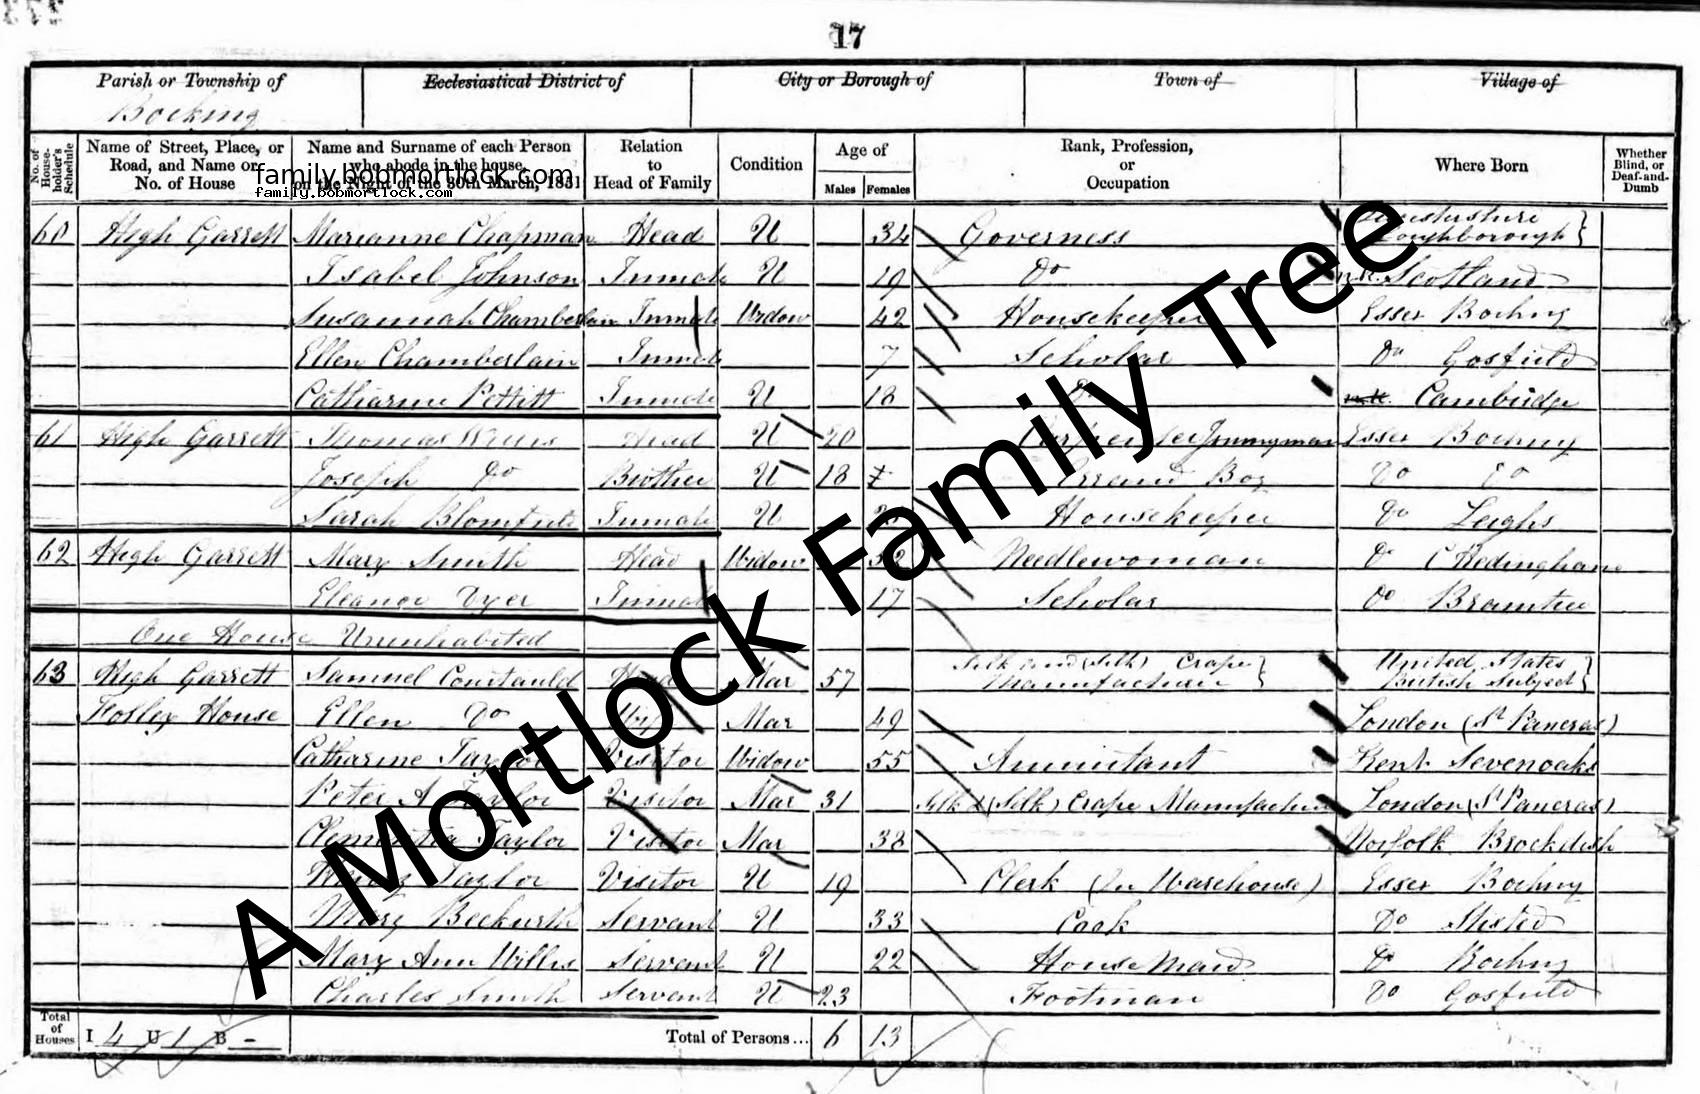 17
Parish or Township of Ecclesiastical District of City or Borough of Town of Village of
Bocking
No. of House-holder's Schedule Name of Street, Place, or Road, and Name or No. of House Name and Surname of each Person who abode in the house, on the Night of the 30th March, 1851 Relation to Head of Family Condition Age of Males Females Rank, Profession, or Occupation Where Born Whether Blind, or Deaf-and-Dumb
family.bobmortlock.com
family.bobmortlock.com
60 High Garrett Marianne Chapman Head U 34 Governess Loughborough
Isabel Johnson Inmate U 19 Do n.k. Scotland
Susannah Chamberlain Inmate Widow 42 Housekeeper Essex Bocking
Ellen Chamberlain Inmate 7 Scholar Do Gosfield
Catharine Pettitt Inmate U 18 Do Cambridge
61 High Garrett Thomas Head U 20 Carpenter Journeyman Essex Bocking
Joseph Do Brother U 18 Errand Boy Do Do
Sarah Blomfield Inmate U Housekeeper Do Leighs
62 High Garrett Mary Smith Head Widow 32 Needlewoman Do C Hedingham
Eleanor Dyer Inmate 17 Scholar Do Braintree
One House Uninhabited
63 High Garrett Samuel Courtauld Head Mar 57 Silk and (Silk) Crape Manufacturer United States British Subject
Folley House Ellen Do Wife Mar 49 London (St Pancras)
Catharine Taylor Visitor Widow 55 Annuitant Kent Sevenoaks
Peter A Taylor Visitor Mar 31 Silk & (Silk) Crape Manufacturer London (St Pancras)
Clementia Taylor Visitor Mar 38 Norfolk Brockdish
Taylor Visitor U 19 Clerk (In Warehouse) Essex Bocking
Mary Beckwith Servant U 33 Cook Do Stisted
Mary Ann Willis Servant U 22 House Maid Do Bocking
Charles Smith Servant U 23 Footman Do Gosfield
Total of Houses I 4 U 1 B - Total of Persons... 6 13
A Mortlock Family Tree